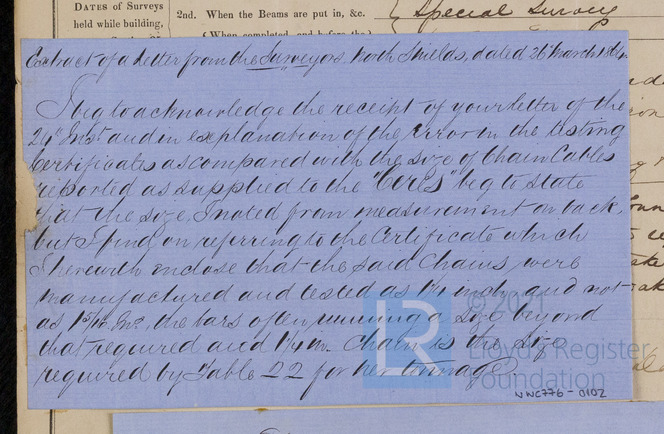 DATES of Surveys
held while building,
2nd. When the Beams are put in, &c.
Special Survey
(When completed, and before the
Extract of a letter from the Surveyors, North Shields, dated 26 March
I beg to acknowledge the receipt of your letter of the
24th Inst and in explanation of the Error in the testing
Certificates as compared with the size of Chain Cables
reported as supplied to the "Ceres" beg to state
that the size I noted from measurement on back,
but I find on referring to the Certificate which
I herewith enclose that the said Chains were
manufactured and tested as 1 1/4 inch, and not
as 1 5/16 In., the bars often running a size beyond
that required and 1 1/4 in. Chain is the size
required by Table 22 for her tonnage
© 2021
LR
Lloyd's Register
Foundation
NWC776-0102